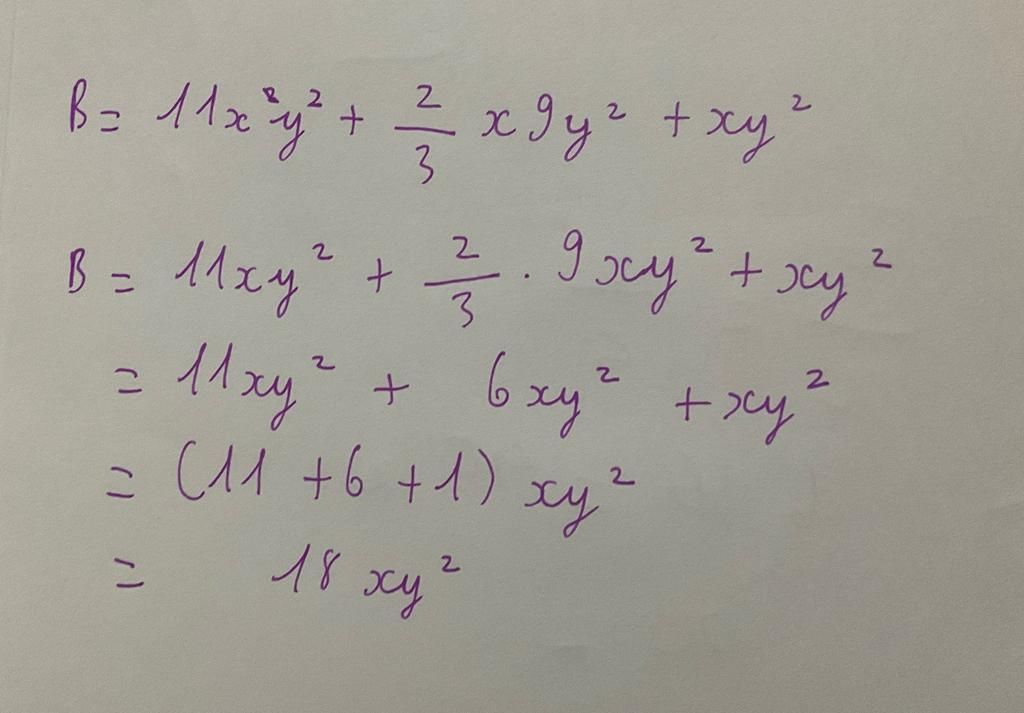 B = 11x²y² + 2/3 x 9y² + xy²
B = 11xy² + 2/3 . 9xy² + xy²
= 11xy² + 6xy² + xy²
= (11 + 6 + 1) xy²
= 18 xy²